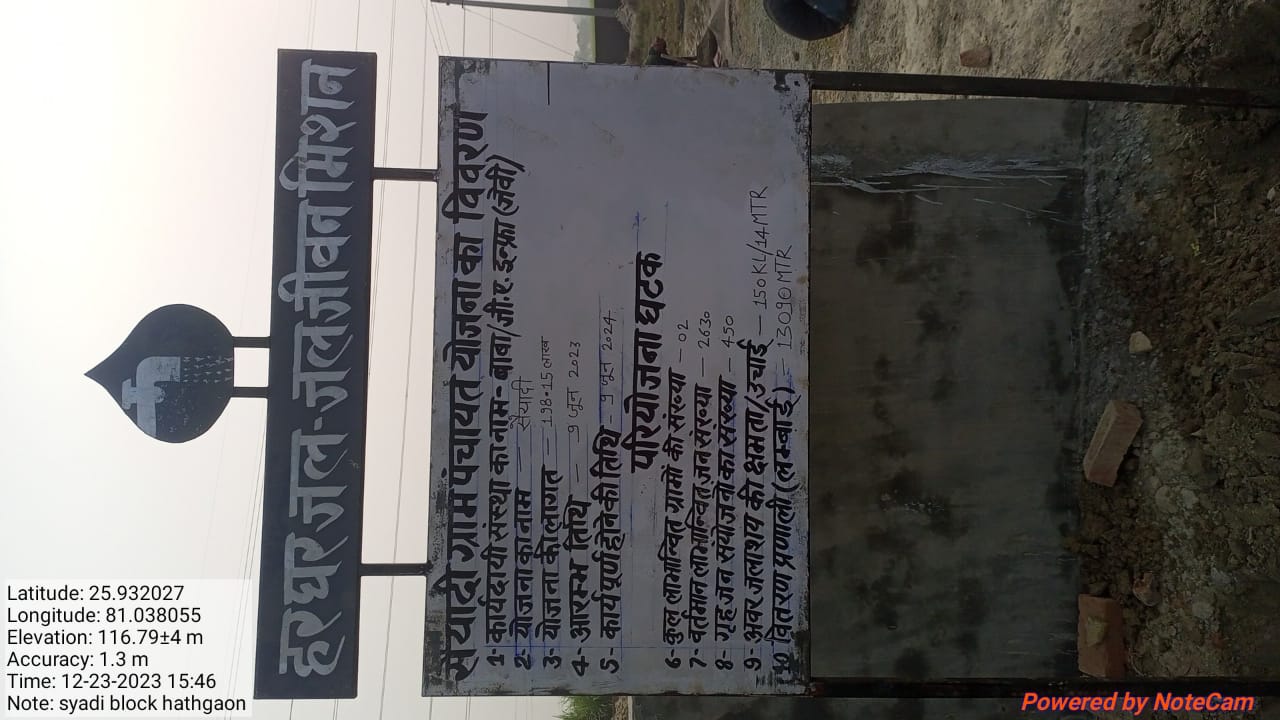 हर घर जल-जल जीवन मिशन
सैयादी ग्राम पंचायत योजना का विवरण
1- कार्यदायी संस्था का नाम- बाबा/जी.ए. इन्फ्रा (जेवी)
2- योजना का नाम — सैयादी
3- योजना की लागत — 198.15 लाख
4- आरम्भ तिथि — 9 जून 2023
5- कार्य पूर्ण होने की तिथि - 9 जून 2024
परियोजना घटक
6- कुल लाभान्वित ग्रामों की संख्या — 02
7- वर्तमान लाभान्वित जनसंख्या — 2630
8- गृह जल संयोजनों का संख्या — 450
9- अवर जलाशय की क्षमता/उचाई — 150KL/14MTR
10 वितरण प्रणाली (लम्बाई) = 13090MTR
Latitude: 25.932027
Longitude: 81.038055
Elevation: 116.79±4 m
Accuracy: 1.3 m
Time: 12-23-2023 15:46
Note: syadi block hathgaon
Powered by NoteCam